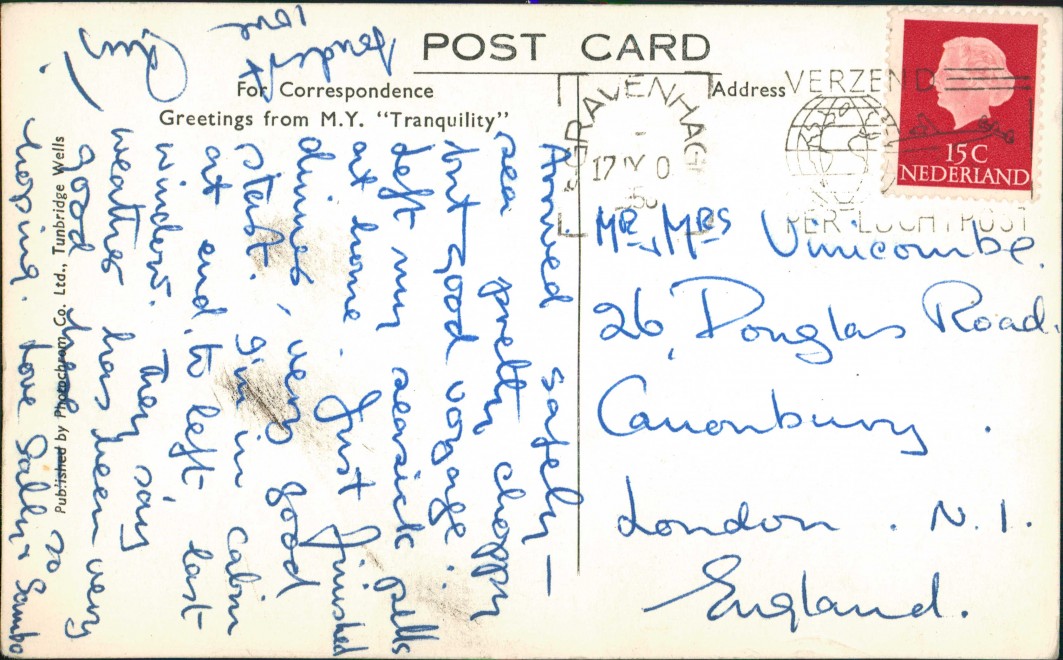 POST CARD
For Correspondence
Address
Greetings from M.Y. "Tranquility"
Published by Photochrom Co. Ltd., Tunbridge Wells
Arrived safely —
sea pretty choppy
but good voyage.
Left my seasick pills
at home. Just finished
dinner, very good
start. I'm in cabin
at end, to left, last
window. They say
weather has been very
good here so
hoping. Love Sally & Sambo
Fondest
love
MR, MRS Unicombe.
26, Douglas Road.
Canonbury.
London. N.1.
England.
GRAVENHAGE
17 IV 0
VERZEND
PER LUCHTPOST
15C
NEDERLAND